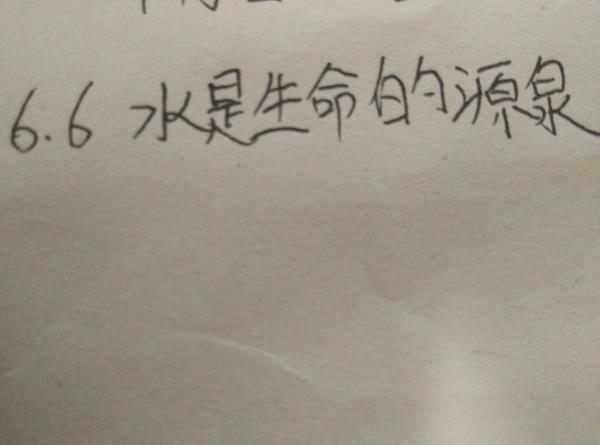 6.6 水是生命的源泉